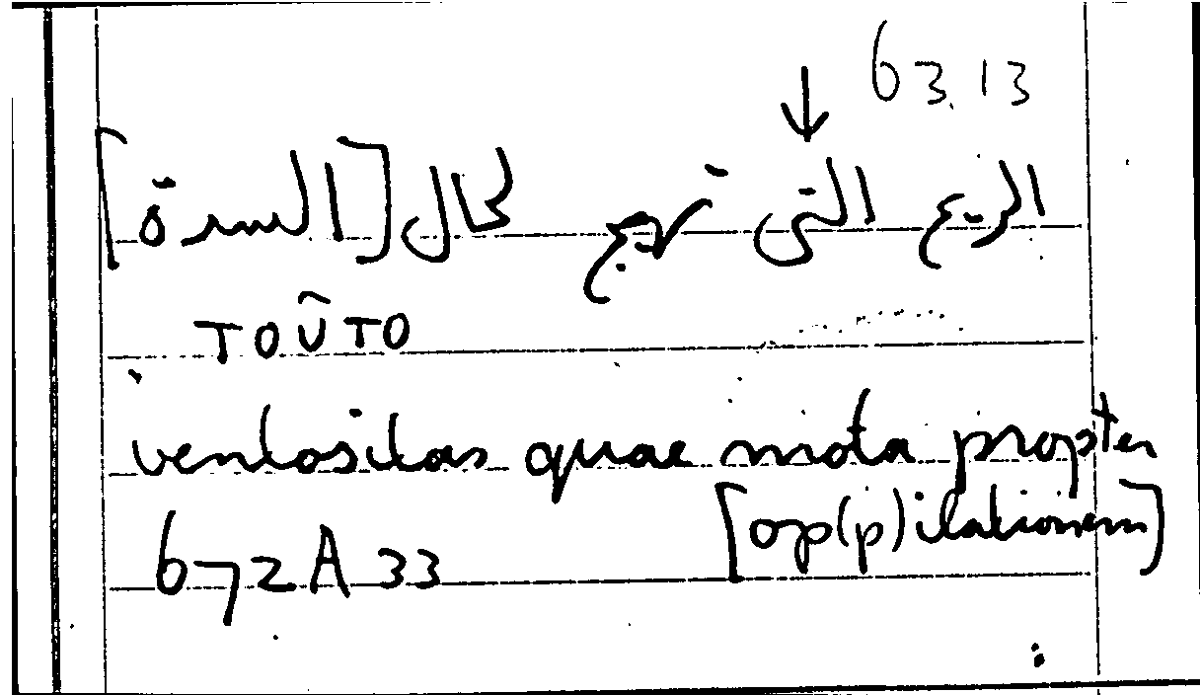 63.13
↓
الريح التي تهيج لحال [السدة]
τοῦτο
ventositas quae mota propter
[op(p)ilationem]
672 A 33